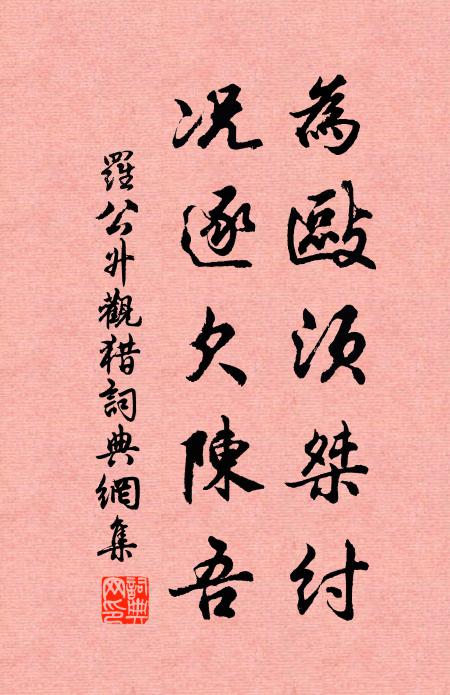 為毆須桀紂
況逐欠陳吾
羅公升觀猎詞典網集
詞典
网印